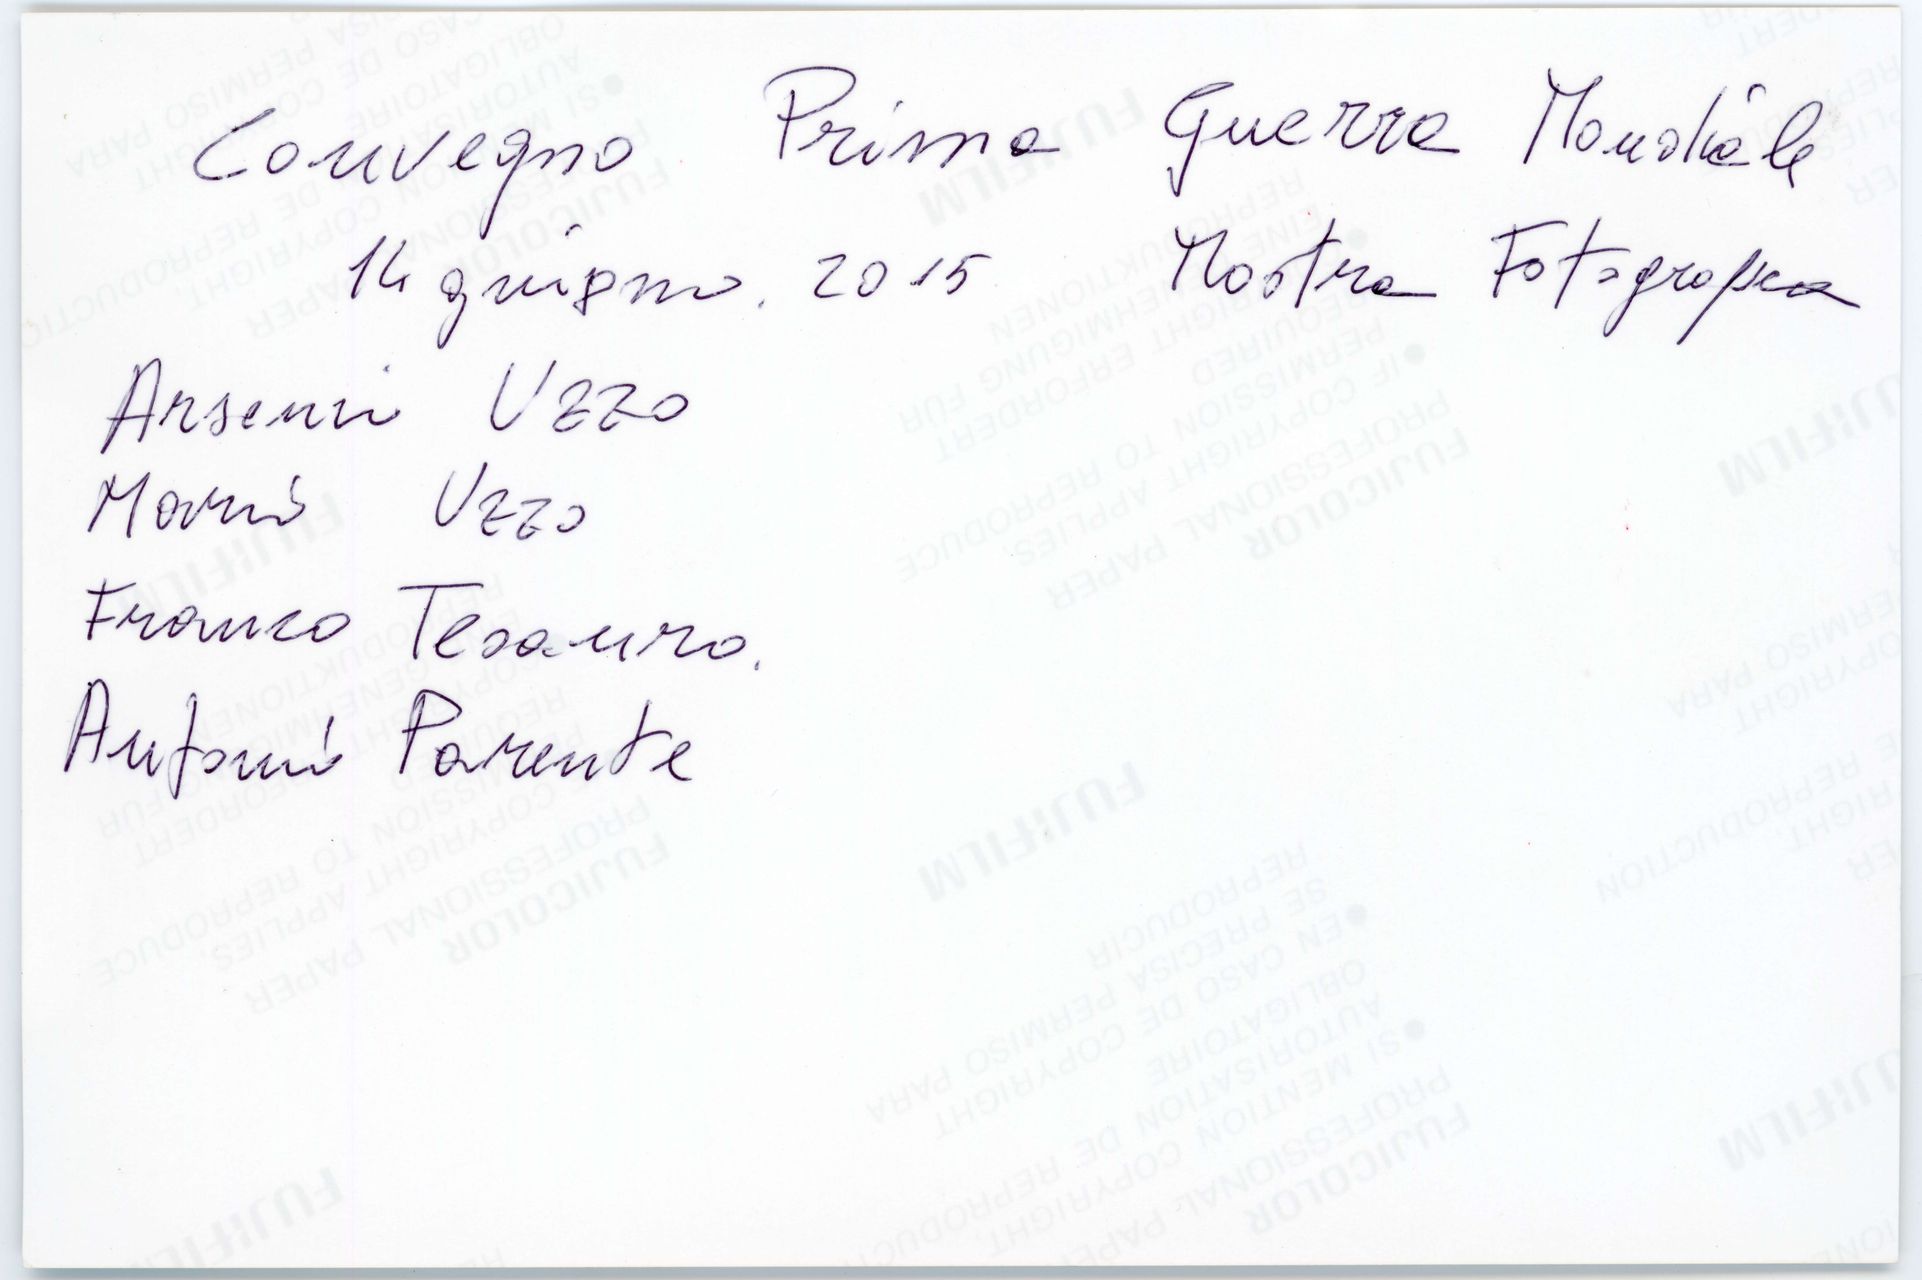 Convegno Prima Guerra Mondiale
14 giugno. 2015 Mostra Fotografica
Arsenio Uzzo
Mario Uzzo
Franco Tesauro.
Antonio Parente
FUJIFILM
FUJICOLOR
PROFESSIONAL PAPER
IF COPYRIGHT APPLIES,
PERMISSION TO REPRODUCE
REQUIRED
FUJIFILM
FUJICOLOR
PROFESSIONAL PAPER
SI MENTION COPYRIGHT,
AUTORISATION DE REPRODUCTION
OBLIGATOIRE
EN CASO DE COPYRIGHT
SE PRECISA PERMISO PARA
REPRODUCIR
FUJIFILM